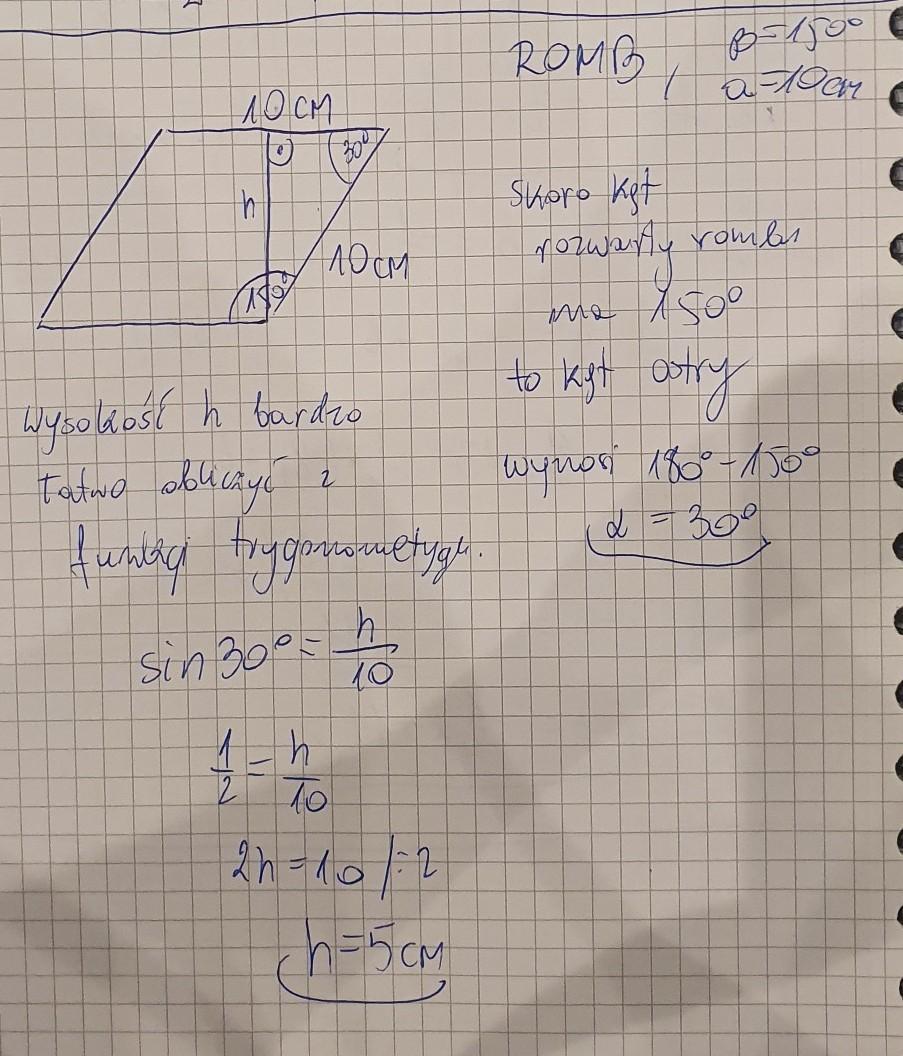 ROMB, β=150°
a=10cm
10cm
30°
h
10cm
150°
Skoro kąt
rozwarty rombu
ma 150°
to kąt ostry
wynosi 180°-150°
α = 30°
Wysokość h bardzo
łatwo obliczyć z
funkcji trygonometrycz.
sin 30° = h/10
1/2 = h/10
2h = 10 /:2
h = 5cm